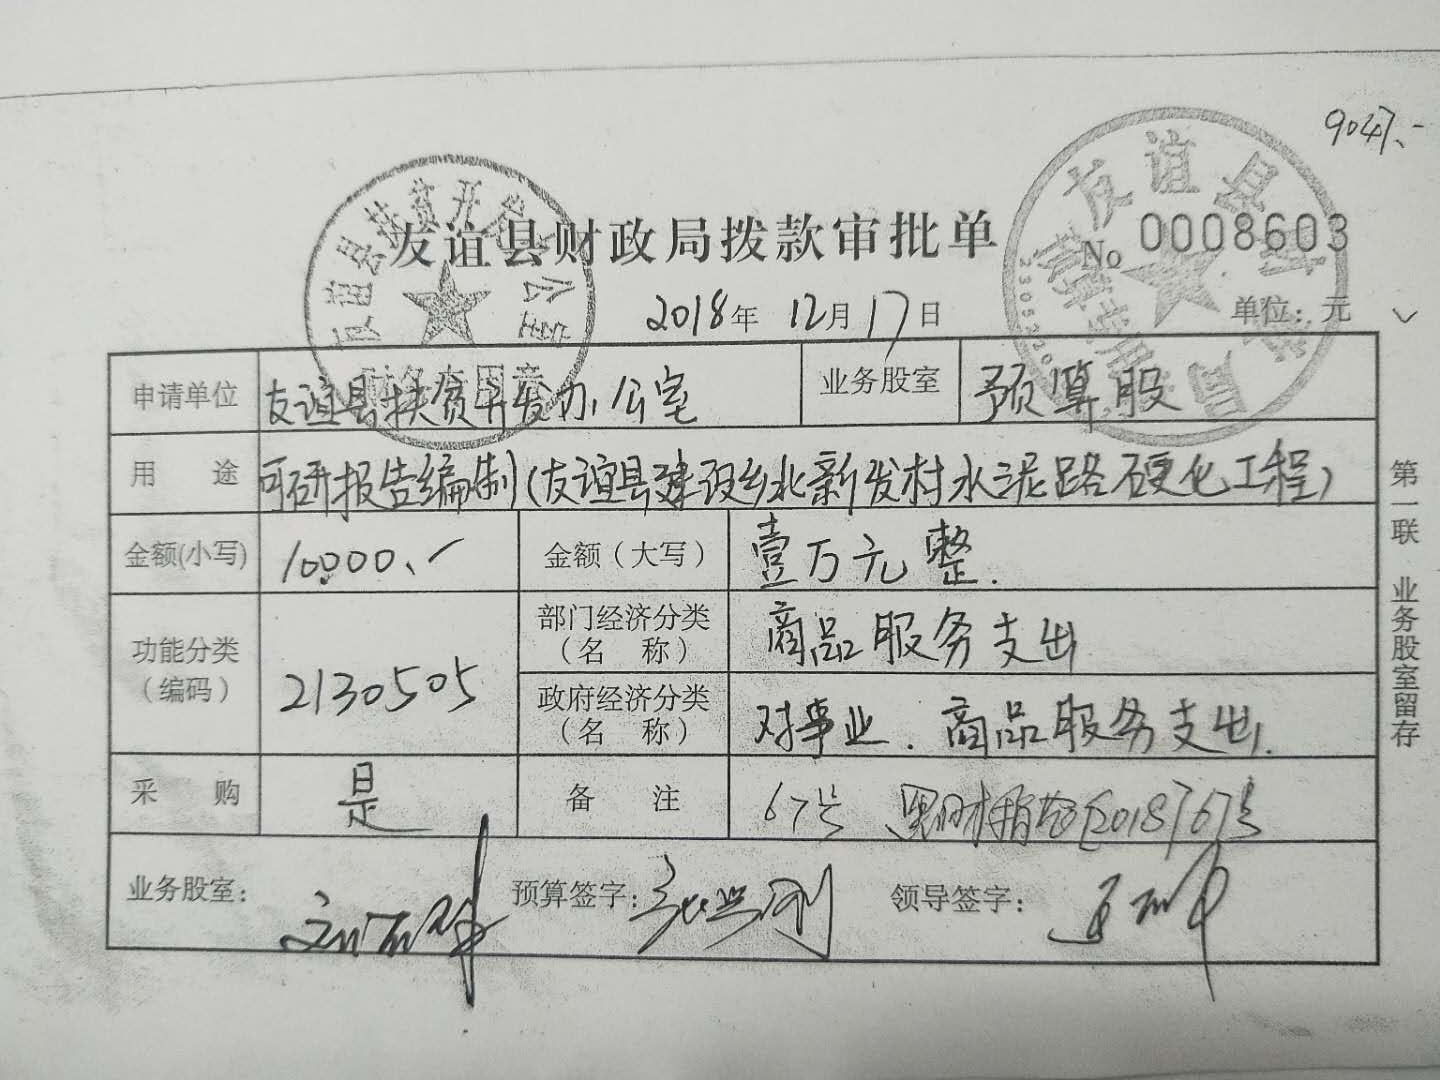 9047、-
友谊县财政局拨款审批单
No 0008603
2018年 12月17日
单位：元
申请单位 友谊县扶贫开发办公室 业务股室 预算股
用 途 可研报告编制(友谊县建设乡北新发村水泥路硬化工程)
金额(小写) 10000、- 金额（大写） 壹万元整.
功能分类（编码） 2130505
部门经济分类（名 称） 商品服务支出
政府经济分类（名 称） 对事业. 商品服务支出.
采 购 是 备 注 67号 黑财指(农)〔2018〕67号
业务股室： 预算签字： 领导签字：
第一联 业务股室留存
友谊县扶贫开发办公室
财务专用章
友谊县